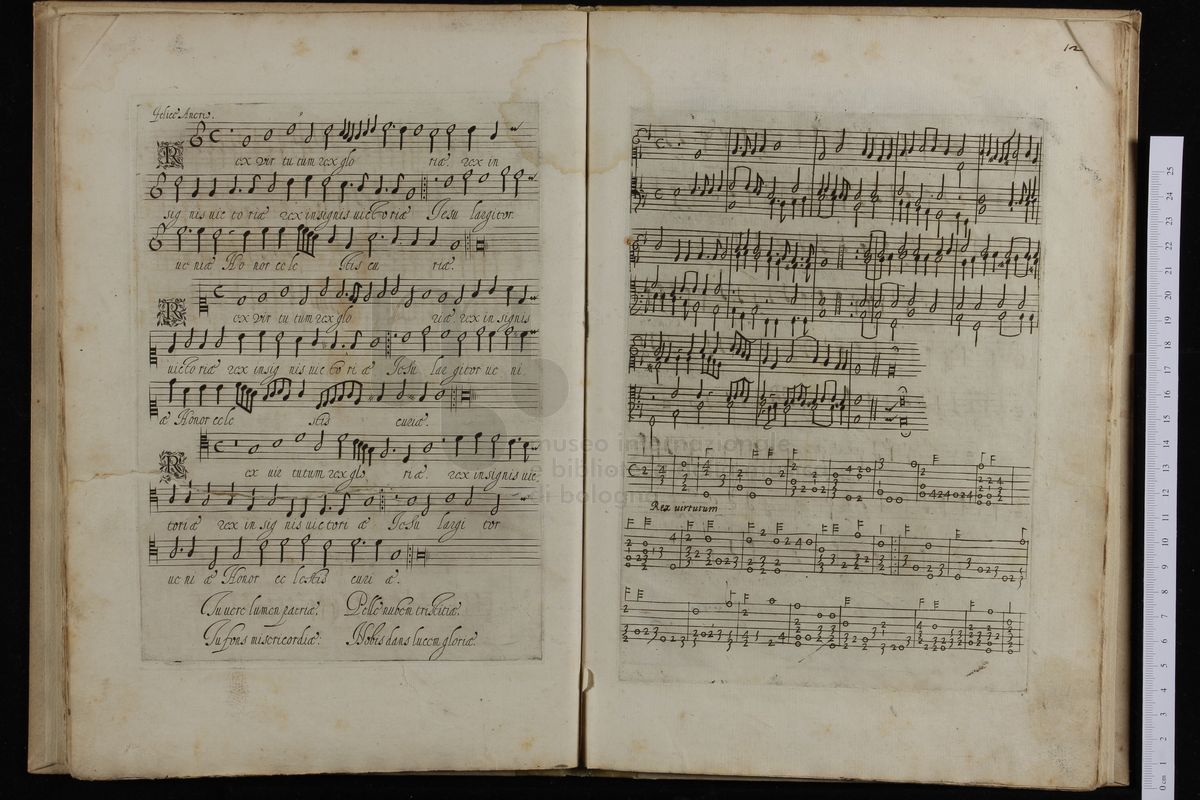 Felice Anerio.
Rex vir tu tum rex glo riæ. rex in
sig nis vic to riæ rex insignis victo riæ Jesu largitor
ve niæ Ho nor ec le stis cu riæ.
Rex vir tu tum rex glo riæ. rex in signis
victo riæ rex insig nis vic to ri æ Jesu lar gitor ve ni
æ Honor ecle stis curiæ.
Rex vir tutum rex glo riæ. rex insignis vic
toriæ rex in sig nis victori æ Jesu largi tor
ve ni æ Honor ec lestis curi æ.
Tu vere lumen patriæ. Pelle nubem tristitiæ.
Tu fons misericordiæ: Nobis dans lucem gloriæ.
12
Rex virtutum
museo internazionale
e biblioteca
di bologna